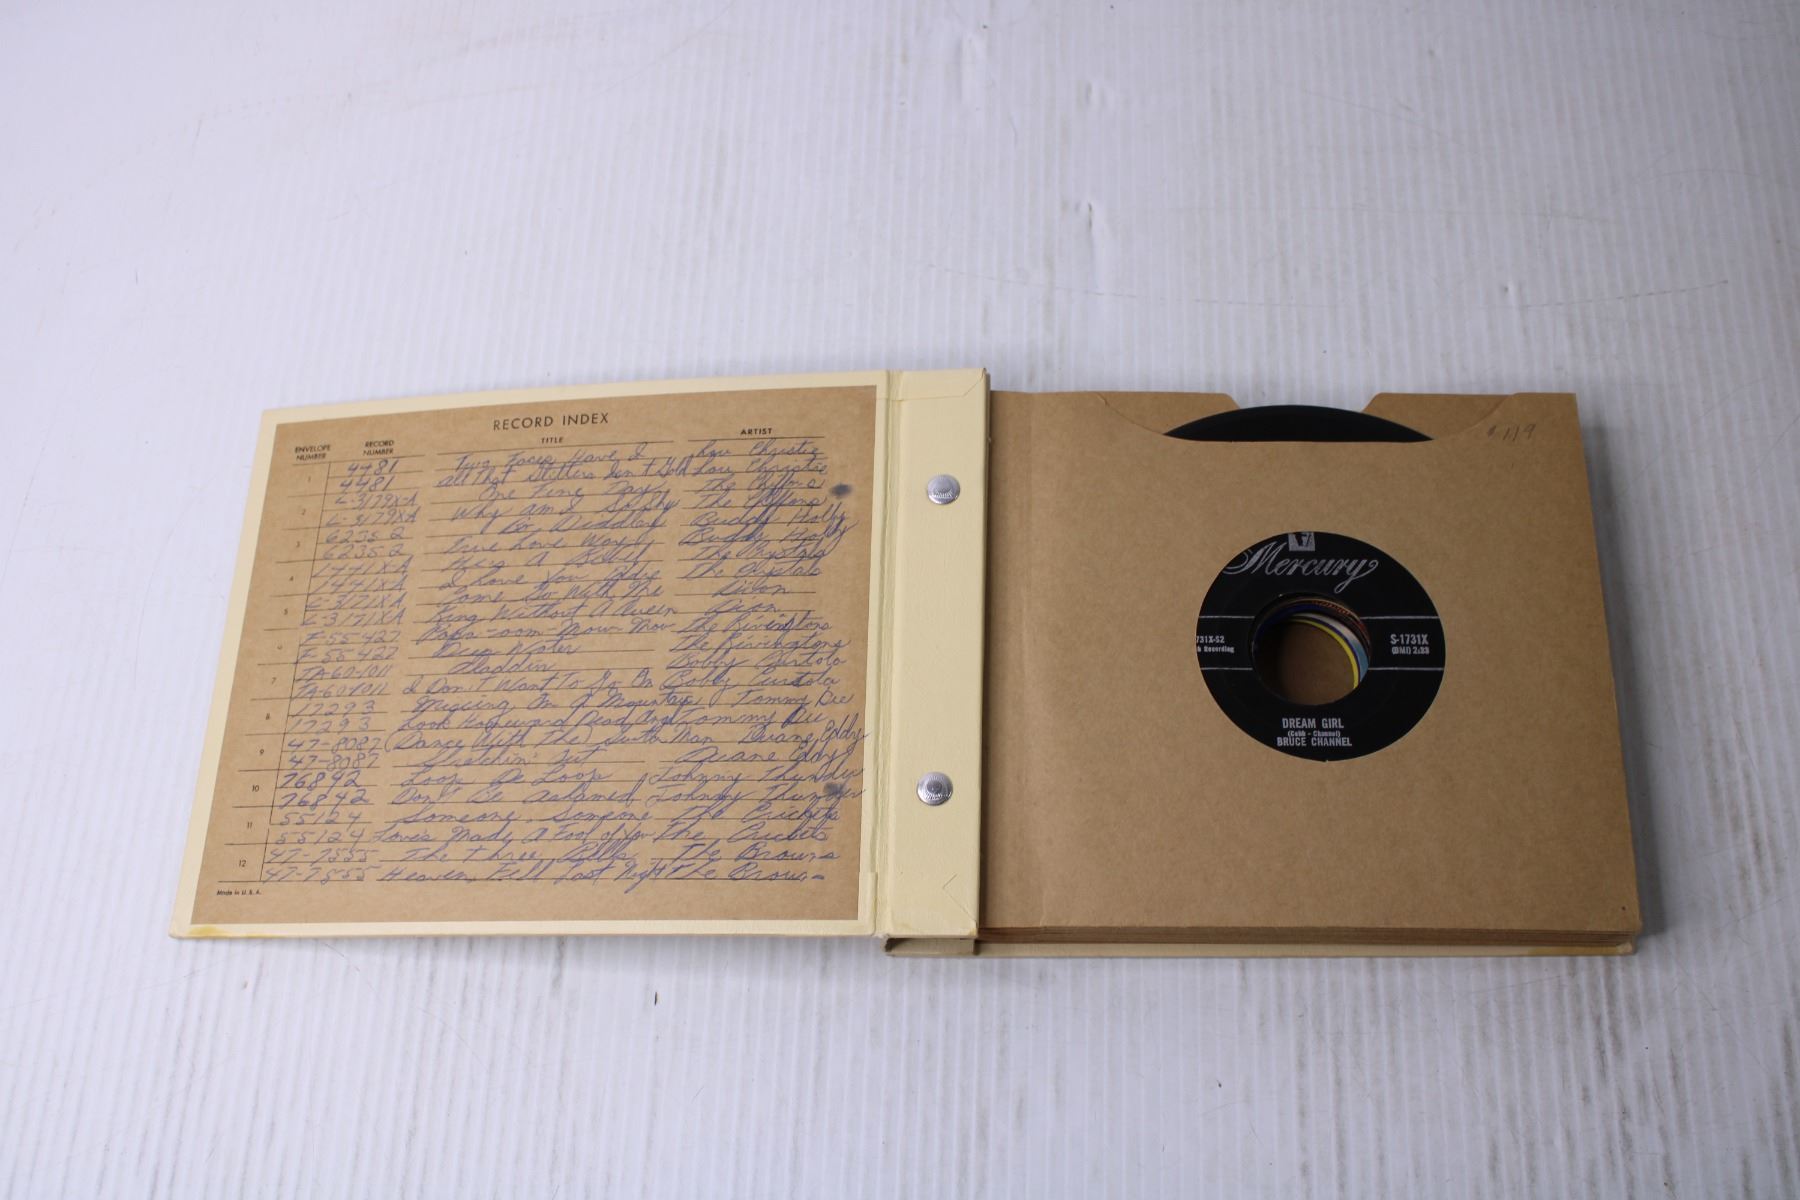 RECORD INDEX
ENVELOPE NUMBER RECORD NUMBER TITLE ARTIST
1 4481 Two Faces Have I Lou Christie
4481 All That Glitters Isn't Gold Lou Christie
2 L-3179X-A One Fine Day The Chiffons
L-3179XA Why am I So Shy The Chiffons
3 62352 Bo Diddley Buddy Holly
62352 True Love Ways Buddy Holly
4 1441X-A He's A Rebel The Crystals
1441X-A I Love You Eddie The Crystals
5 L-3171XA Come Go With Me Dion
L-3171XA King Without A Queen Dion
6 F-55427 Papa-oom-Mow-Mow The Rivingtons
F-55427 Deep Water The Rivingtons
7 TA-60-1011 Aladdin Bobby
TA-60-1011 I Don't Want To Go On Bobby Curtola
8 17293 Missing On A Mountain Tommy Dee
17293 Look Homeward Dead Angel Tommy Dee
9 47-8087 (Dance With The) Guitar Man Duane Eddy
47-8087 Stretchin' Out Duane Eddy
10 76842 Loop De Loop Johnny Thunder
76842 Don't Be Ashamed Johnny Thunder
11 55124 Someone, Someone The Crickets
55124 Love's Made A Fool of You The Crickets
12 47-7555 The Three Bells The Browns
47-7555 Heaven Fell Last Night The Browns
Made in U. S. A.
$ 1.19
Mercury
731X-S2 S-1731X
Recording (BMI) 2:28
DREAM GIRL
(Cobb - Channel)
BRUCE CHANNEL